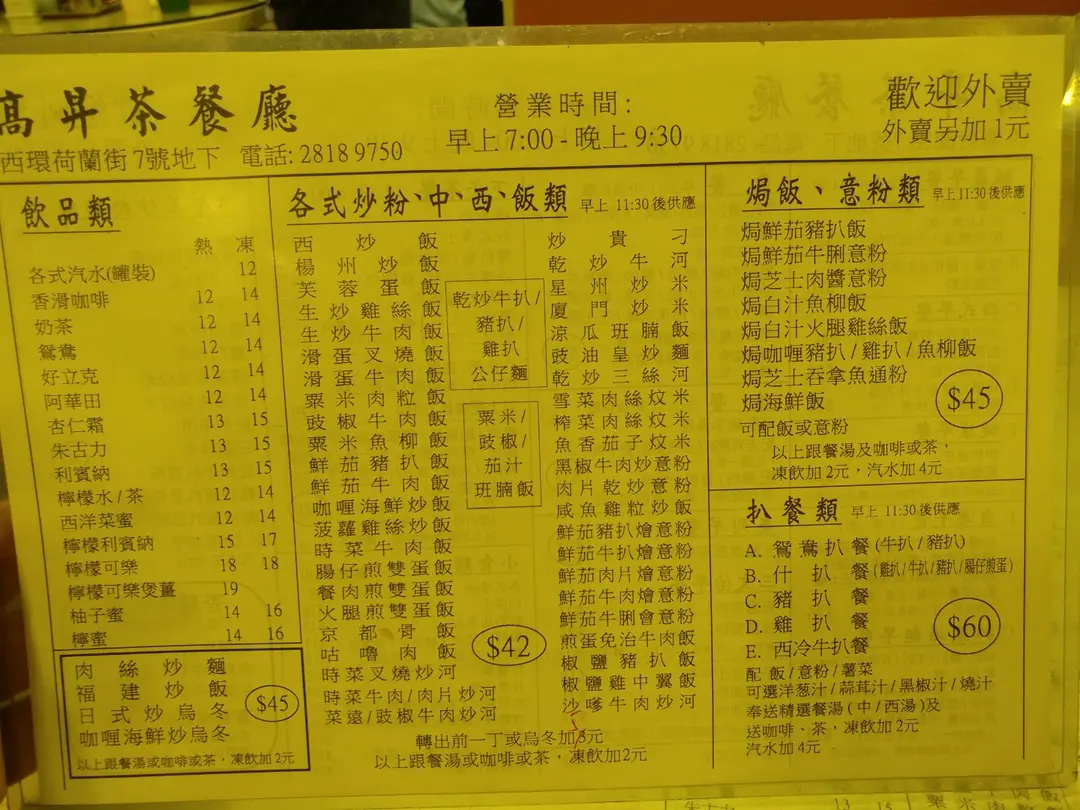 高昇茶餐廳
西環荷蘭街7號地下 電話: 2818 9750
營業時間:
早上 7:00 - 晚上 9:30
歡迎外賣
外賣另加1元
飲品類
熱 凍
各式汽水(罐裝) 12
香滑咖啡 12 14
奶茶 12 14
鴛鴦 12 14
好立克 12 14
阿華田 12 14
杏仁霜 13 15
朱古力 13 15
利賓納 13 15
檸檬水/茶 12 14
西洋菜蜜 12 14
檸檬利賓納 15 17
檸檬可樂 18 18
檸檬可樂煲薑 19
柚子蜜 14 16
檸蜜 14 16
肉絲炒麵
福建炒飯
日式炒烏冬
咖喱海鮮炒烏冬
$45
以上跟餐湯或咖啡或茶，凍飲加2元
各式炒粉、中、西、飯類 早上 11:30後供應
西炒飯
楊州炒飯
芙蓉蛋飯
生炒雞絲飯
生炒牛肉飯
滑蛋叉燒飯
滑蛋牛肉飯
粟米肉粒飯
豉椒牛肉飯
粟米魚柳飯
鮮茄豬扒飯
鮮茄牛肉飯
咖喱海鮮炒飯
菠蘿雞絲炒飯
時菜牛肉飯
腸仔煎雙蛋飯
餐肉煎雙蛋飯
火腿煎雙蛋飯
京都骨飯
咕嚕肉飯
時菜叉燒炒河
時菜牛肉/肉片炒河
菜遠/豉椒牛肉炒河
乾炒牛扒/
豬扒/
雞扒
公仔麵
粟米/
豉椒/
茄汁
班腩飯
$42
炒貴刁
乾炒牛河
星州炒米
廈門炒米
涼瓜班腩飯
豉油皇炒麵
乾炒三絲河
雪菜肉絲炆米
榨菜肉絲炆米
魚香茄子炆米
黑椒牛肉炒意粉
肉片乾炒意粉
咸魚雞粒炒飯
鮮茄豬扒燴意粉
鮮茄牛扒燴意粉
鮮茄肉片燴意粉
鮮茄牛肉燴意粉
鮮茄牛脷會意粉
煎蛋免治牛肉飯
椒鹽豬扒飯
椒鹽雞中翼飯
沙嗲牛肉炒河
轉出前一丁或烏冬加3元
以上跟餐湯或咖啡或茶，凍飲加2元
焗飯、意粉類 早上 11:30後供應
焗鮮茄豬扒飯
焗鮮茄牛脷意粉
焗芝士肉醬意粉
焗白汁魚柳飯
焗白汁火腿雞絲飯
焗咖喱豬扒/雞扒/魚柳飯
焗芝士吞拿魚通粉
焗海鮮飯
$45
可配飯或意粉
以上跟餐湯及咖啡或茶，
凍飲加2元，汽水加4元
扒餐類 早上 11:30後供應
A. 鴛鴦扒餐(牛扒/豬扒)
B. 什扒餐(雞扒/牛扒/豬扒/腸仔煎蛋)
C. 豬扒餐
D. 雞扒餐
E. 西冷牛扒餐
$60
配 飯/意粉/薯菜
可選洋葱汁/蒜茸汁/黑椒汁/燒汁
奉送精選餐湯(中/西湯)及
送咖啡、茶，凍飲加2元
汽水加4元